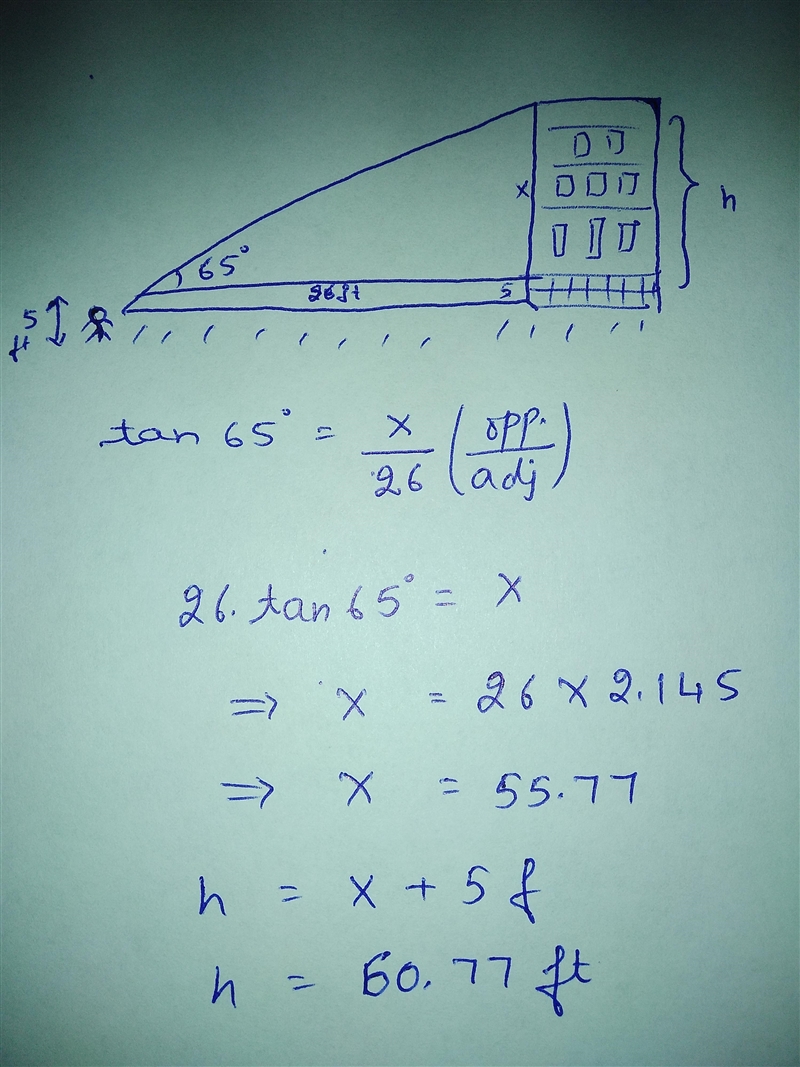 x
h
65°
26ft
5
5
ft
tan 65° = x/26 (opp./adj)
26. tan 65° = x
⇒ x = 26 x 2.145
⇒ x = 55.77
h = x + 5 f
h = 60.77 ft